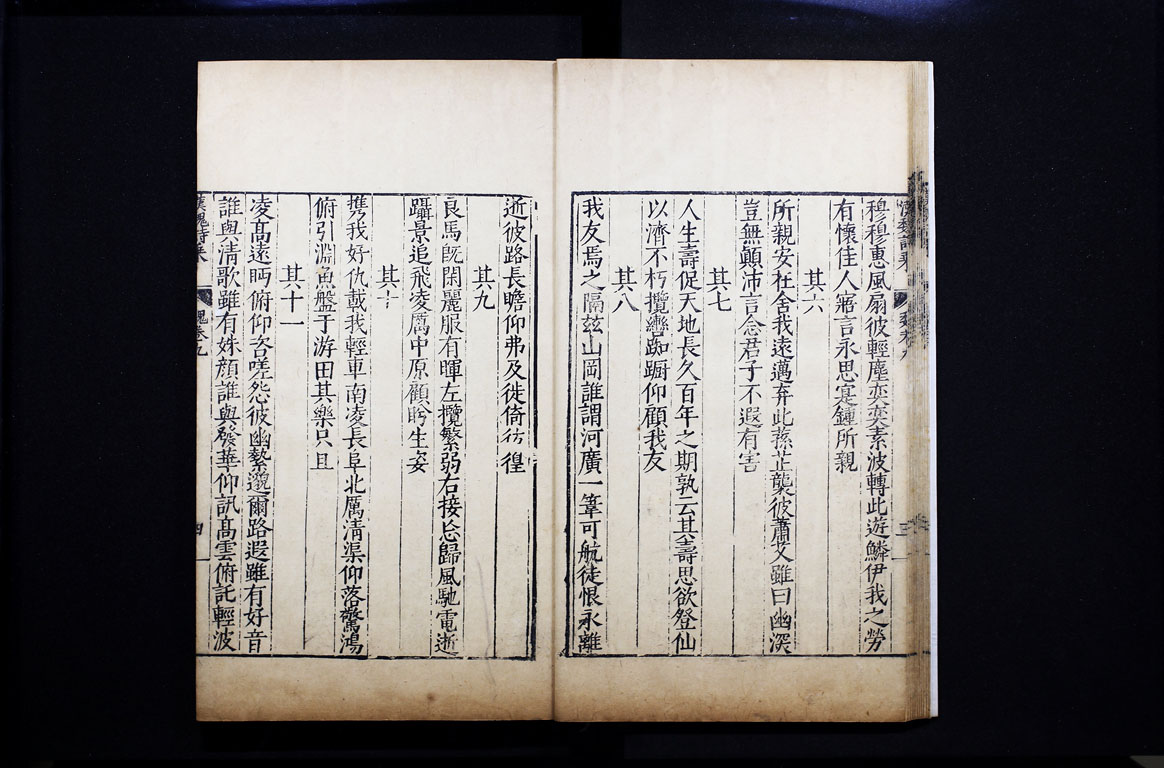 穆穆惠風扇彼輕塵奕奕素波轉此遊鱗伊我之勞
有懷佳人寤言永思寔鍾所親
其六
所親安在舍我遠邁弃此蓀芷襲彼蕭艾雖曰幽深
豈無顛沛言念君子不遐有害
其七
人生壽促天地長久百年之期孰云其壽思欲登仙
以濟不朽攬轡踟蹰仰顧我友
其八
我友焉之隔兹山岡誰謂河廣一葦可航徒恨永離
逝彼路長瞻仰弗及徙倚彷徨
其九
良馬旣閑麗服有暉左攬繁弱右接忘歸風馳電逝
躡景追飛凌厲中原顧盻生姿
其十
携我好仇載我輕車南凌長阜北厲清渠仰落驚鴻
俯引淵魚盤于游田其樂只且
其十一
凌高遠眄俯仰咨嗟怨彼幽縶邈爾路遐雖有好音
誰與清歌雖有姝顔誰與發華仰訊高雲俯託輕波
漢魏詩乘
魏卷九
四